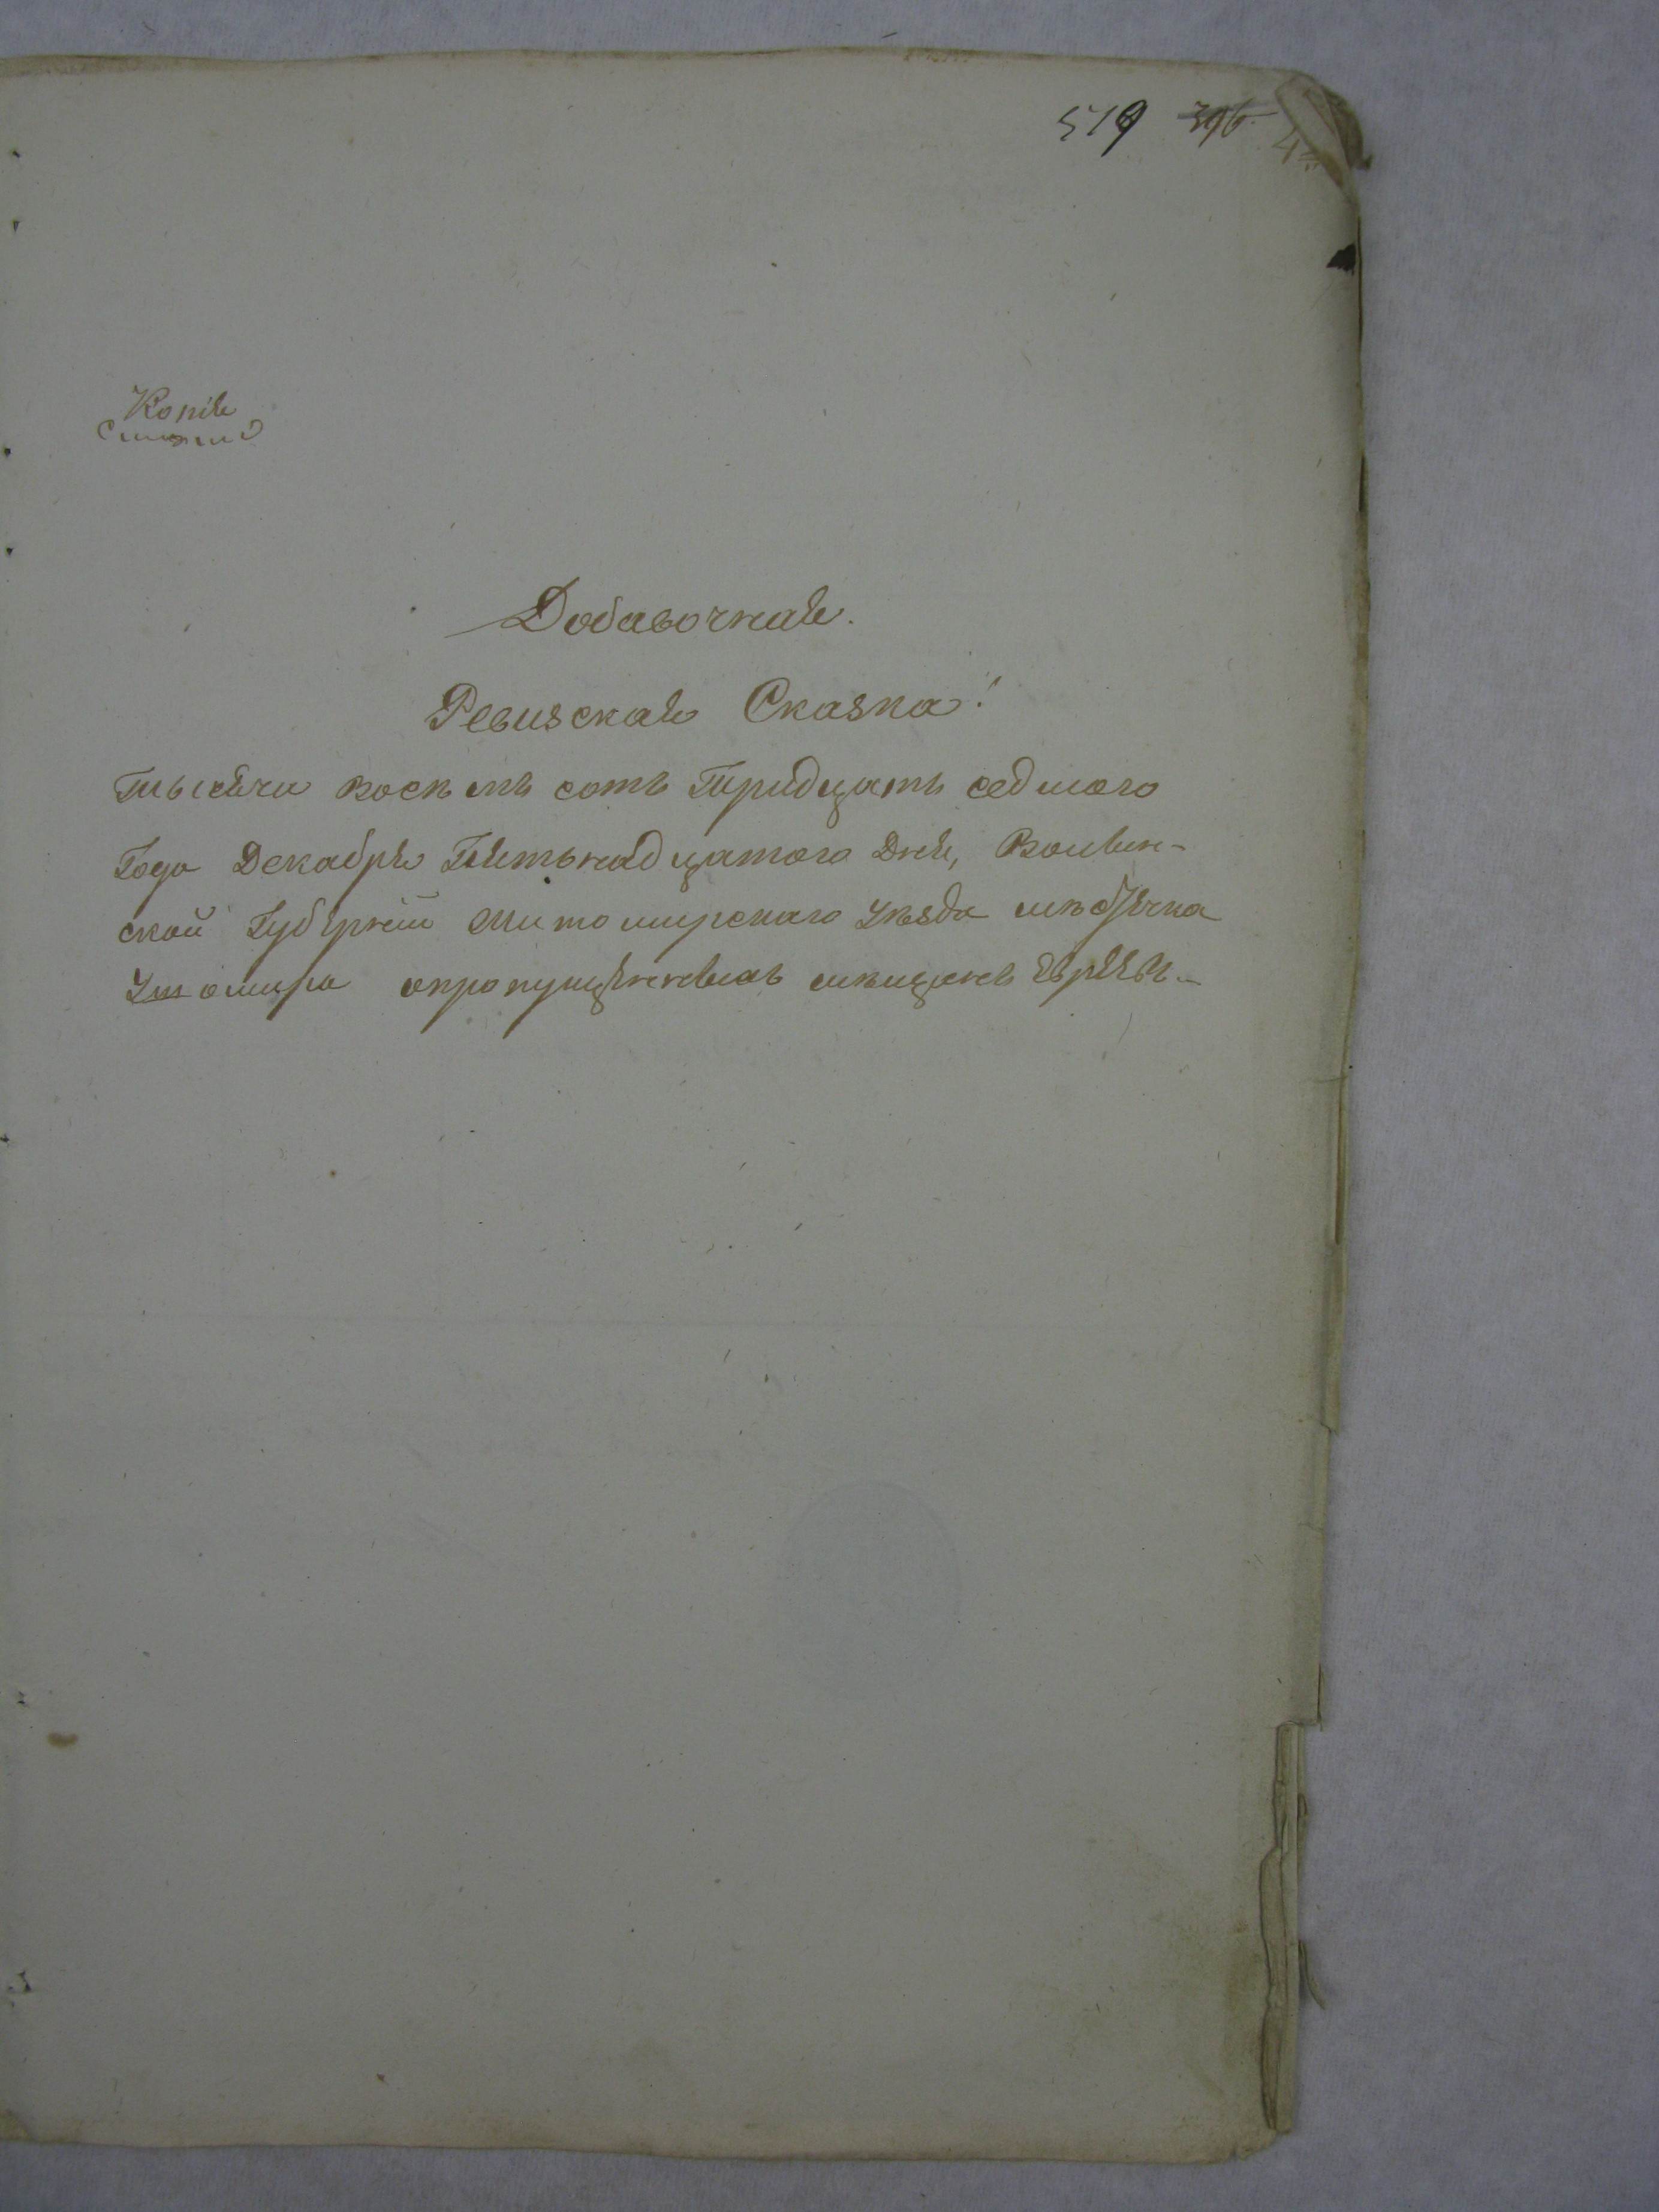 519 396
Копія
Добавочная.
Ревизская Сказка!
Тысячи восѣмь сотъ Тридцать седмого
Года Декабря Пятьнадцатого Дня, Волин-
ской Губерніи Житомирскаго Уѣзда мѣстечка
Ушомира опропущенныхъ мѣщанъ Евреяхъ.